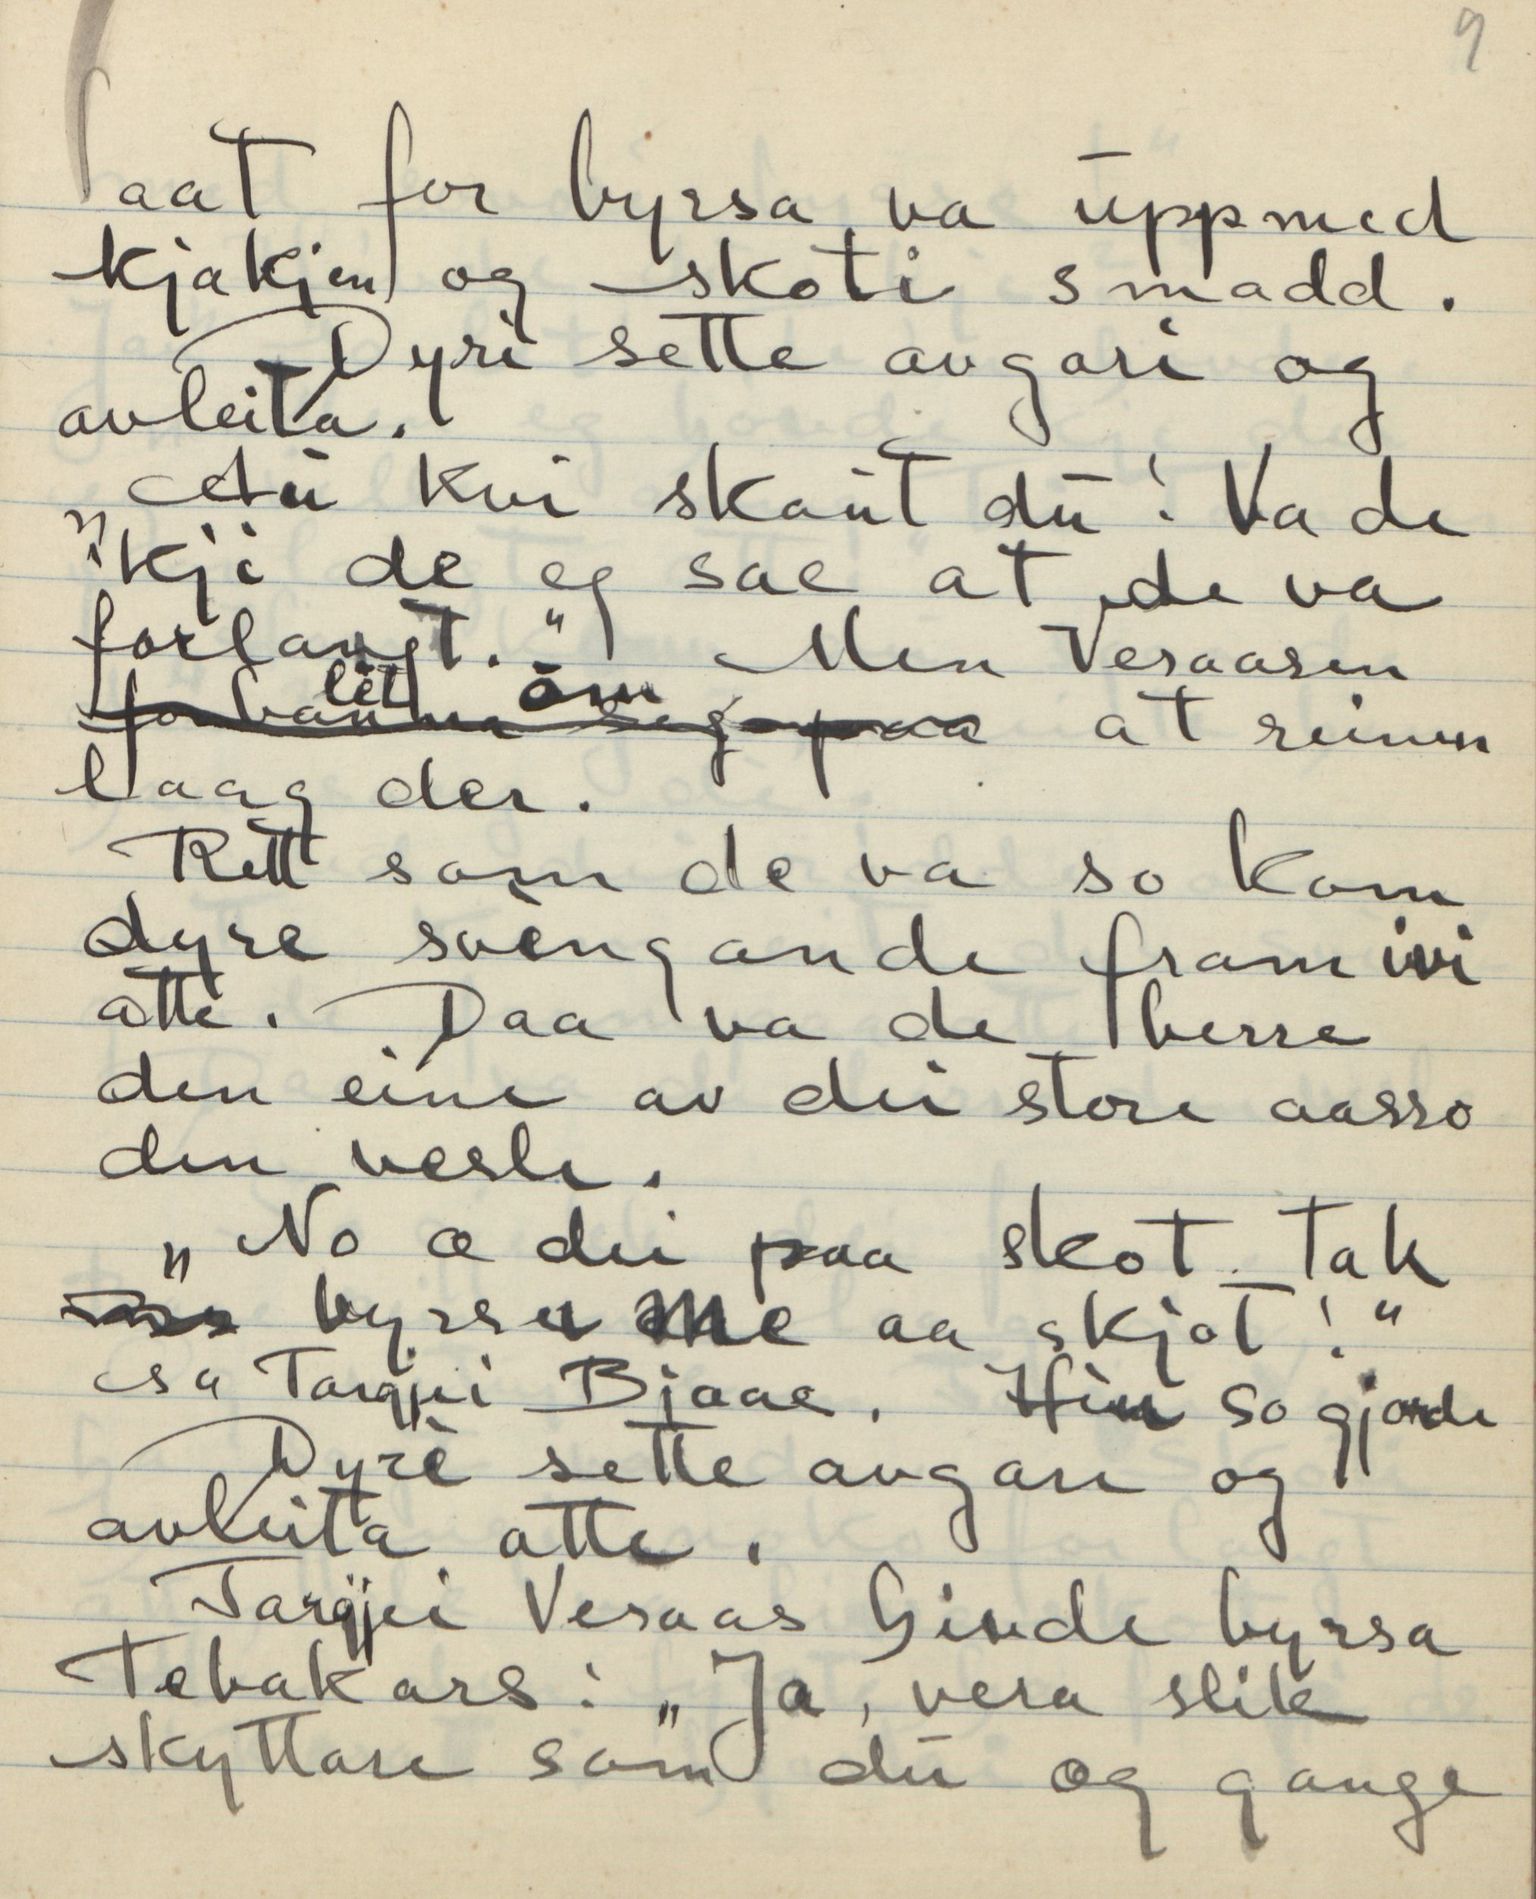 9
aat for byrsa va uppmed
kjakjen og skoti smadd.
Dyri sette avgari og
avleita.
"Au kvi skaut du! Va de
ikkji de eg sae at de va
forlangt." Men Vesaasen
let om
forbanna seg paa at reinen
laag der.
Rett som de va so kom
dyre svingande fram ivi
atte. Daa va de berre
den eine av dei store aasso
den vesle.
"No æ dei paa skot. Tak
byrsa me aa skjot!"
sa Targjei Bjaae. Hin so gjorde
Dyrè sette avgare og
avleita atte.
Targjei Vesaas hivde byrsa
tebakars: "Ja, vera slik
skyttare som du og gange